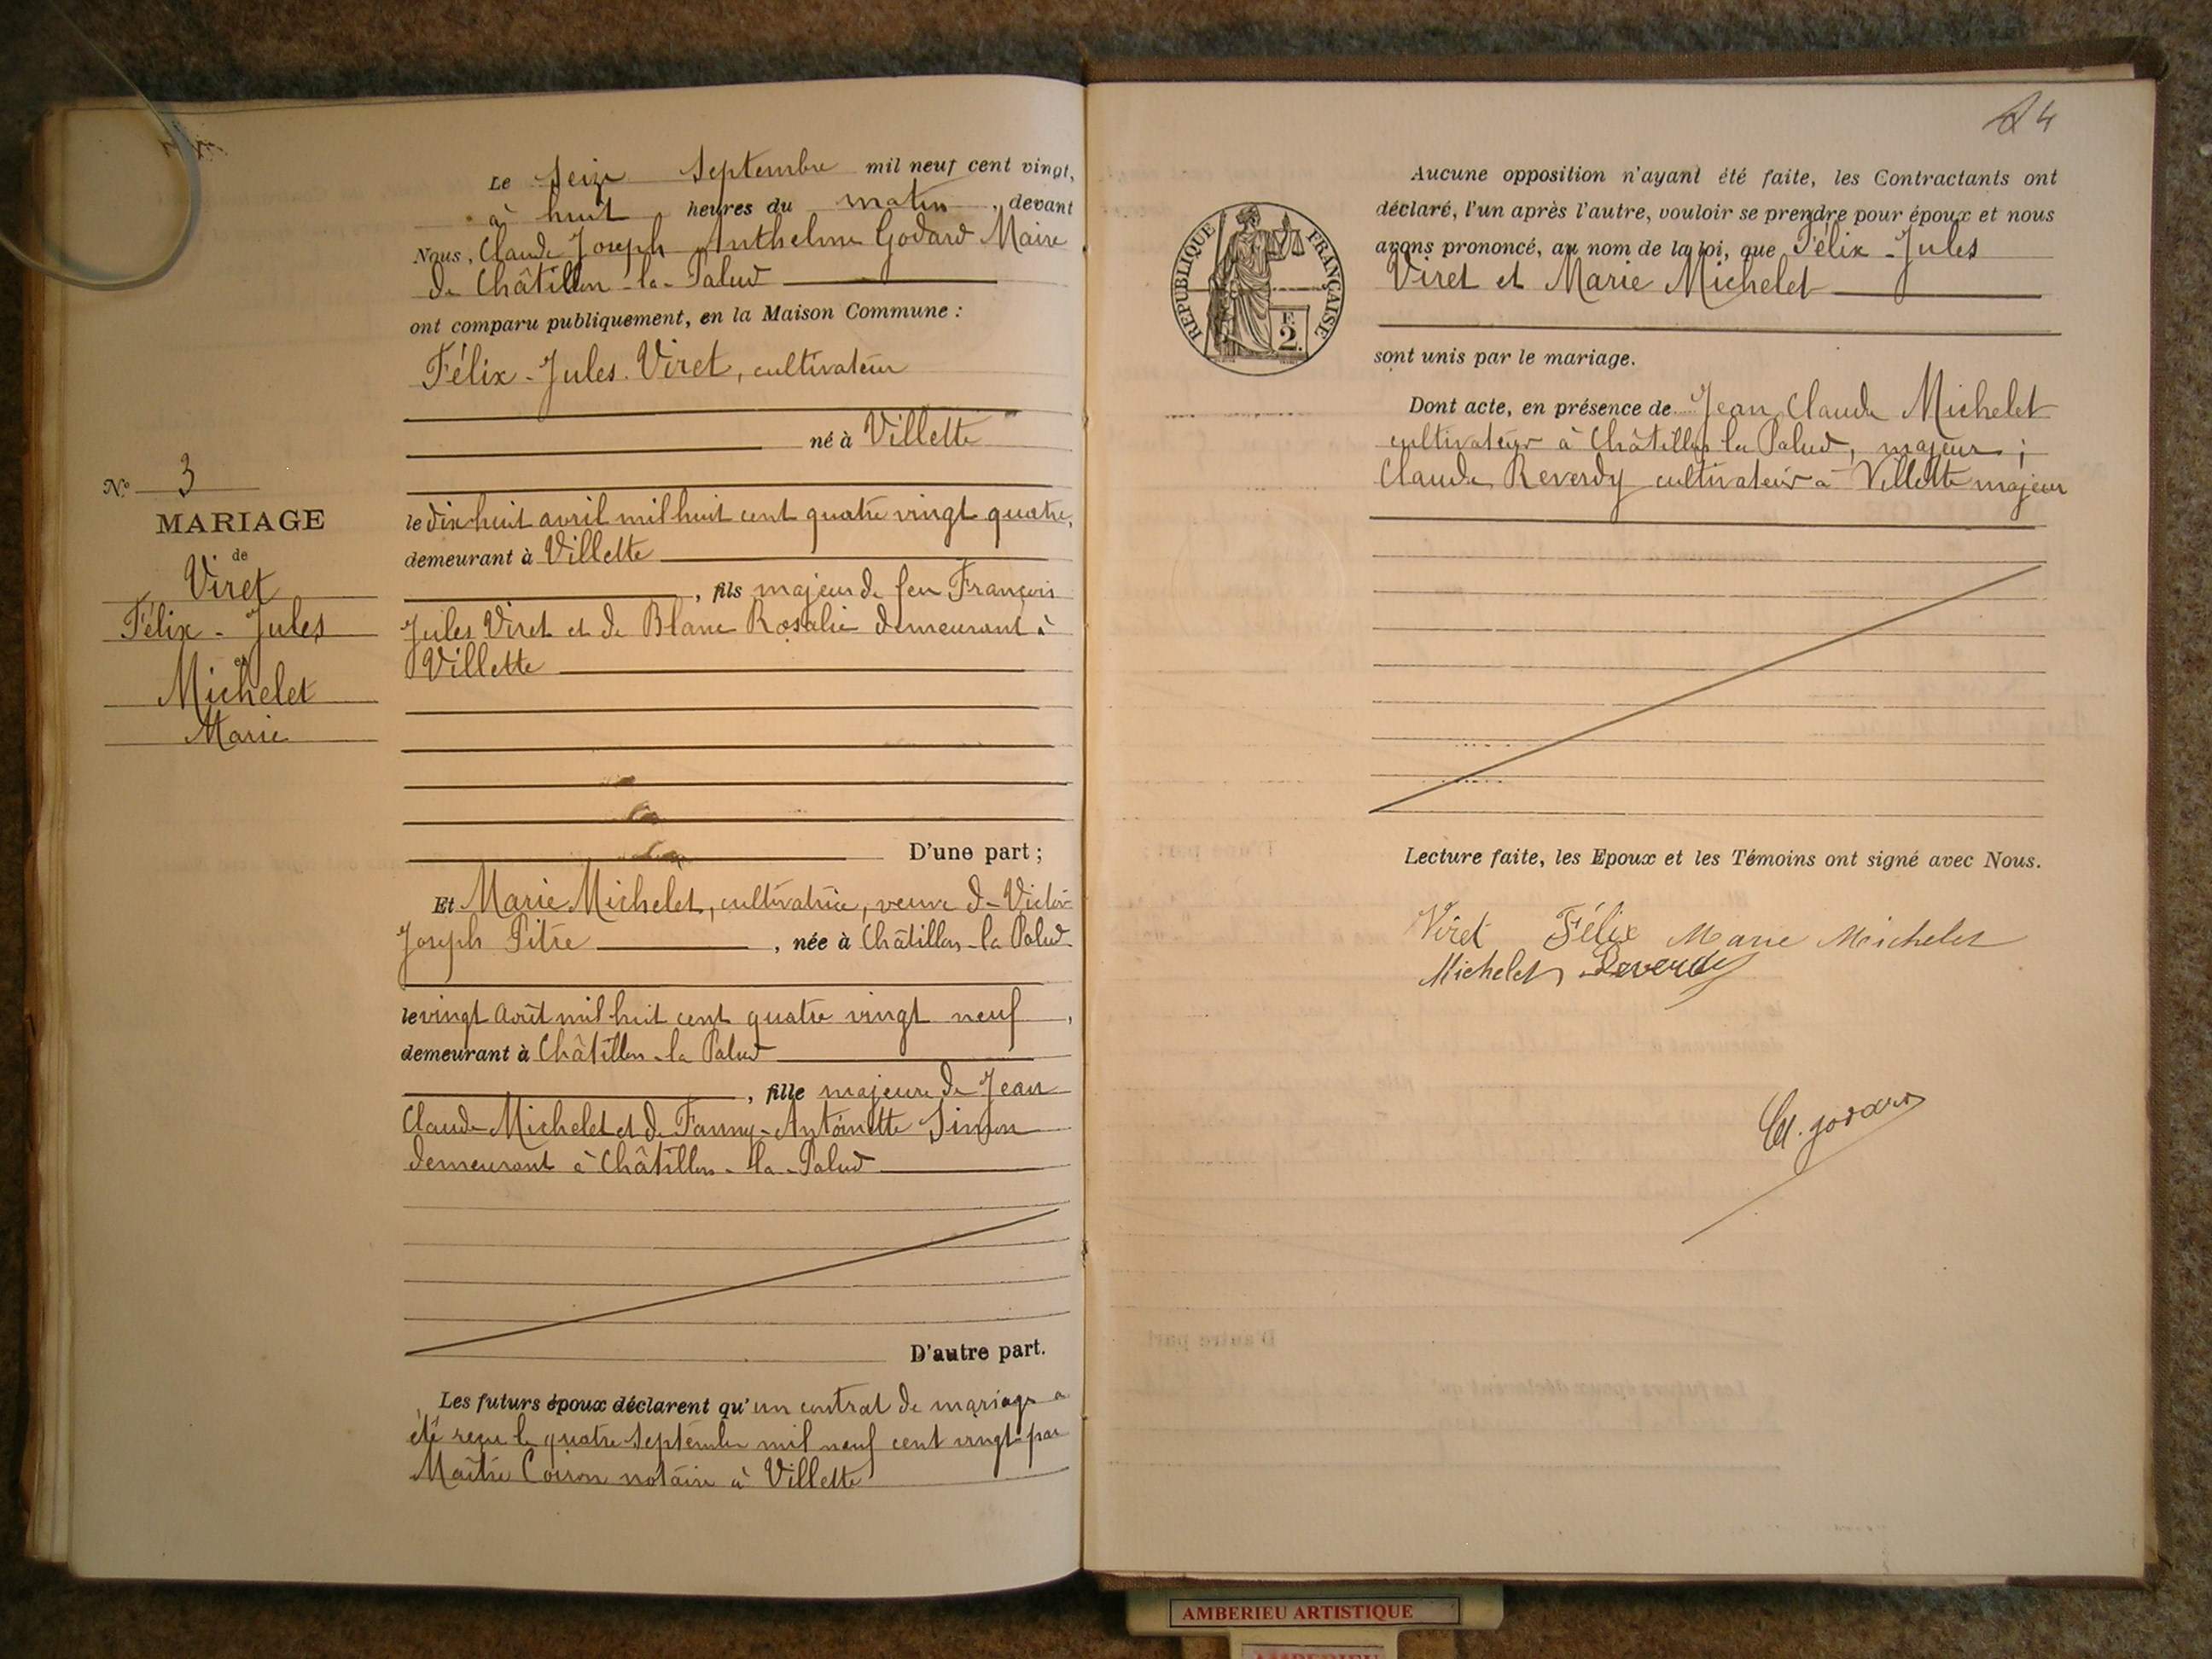 Le seize Septembre mil neuf cent vingt,
à huit heures du matin, devant
Nous, Claude Joseph Anthelme Godard Maire
de Châtillon-la-Palud
ont comparu publiquement, en la Maison Commune :
Félix-Jules Viret, cultivateur
né à Villette
le dix huit avril mil huit cent quatre vingt quatre,
demeurant à Villette
, fils majeur de feu François
Jules Viret et de Blanc Rosalie demeurant à
Villette
D'une part ;
Et Marie Michelet, cultivatrice, veuve de Victor
Joseph Pitre, née à Châtillon-la Palud
le vingt Août mil huit cent quatre vingt neuf,
demeurant à Châtillon-la Palud
, fille majeure de Jean
Claude Michelet et de Fanny-Antoinette Simon
demeurant à Châtillon-la-Palud
D'autre part.
Les futurs époux déclarent qu'un contrat de mariage a
été reçu le quatre Septembre mil neuf cent vingt par
Maître Coiron notaire à Villette
N° 3
MARIAGE
de
Viret
Félix-Jules
et
Michelet
Marie
24
RÉPUBLIQUE FRANÇAISE
F.
2.
Aucune opposition n'ayant été faite, les Contractants ont
déclaré, l'un après l'autre, vouloir se prendre pour époux et nous
avons prononcé, au nom de la loi, que Félix-Jules
Viret et Marie Michelet
sont unis par le mariage.
Dont acte, en présence de Jean Claude Michelet
cultivateur à Châtillon la Palud, majeur ;
Claude Reverdy cultivateur à Villette majeur
Lecture faite, les Epoux et les Témoins ont signé avec Nous.
Viret Félix Marie Michelet
Michelet Reverdy
Cl. godard
AMBERIEU ARTISTIQUE
AMBERIEU